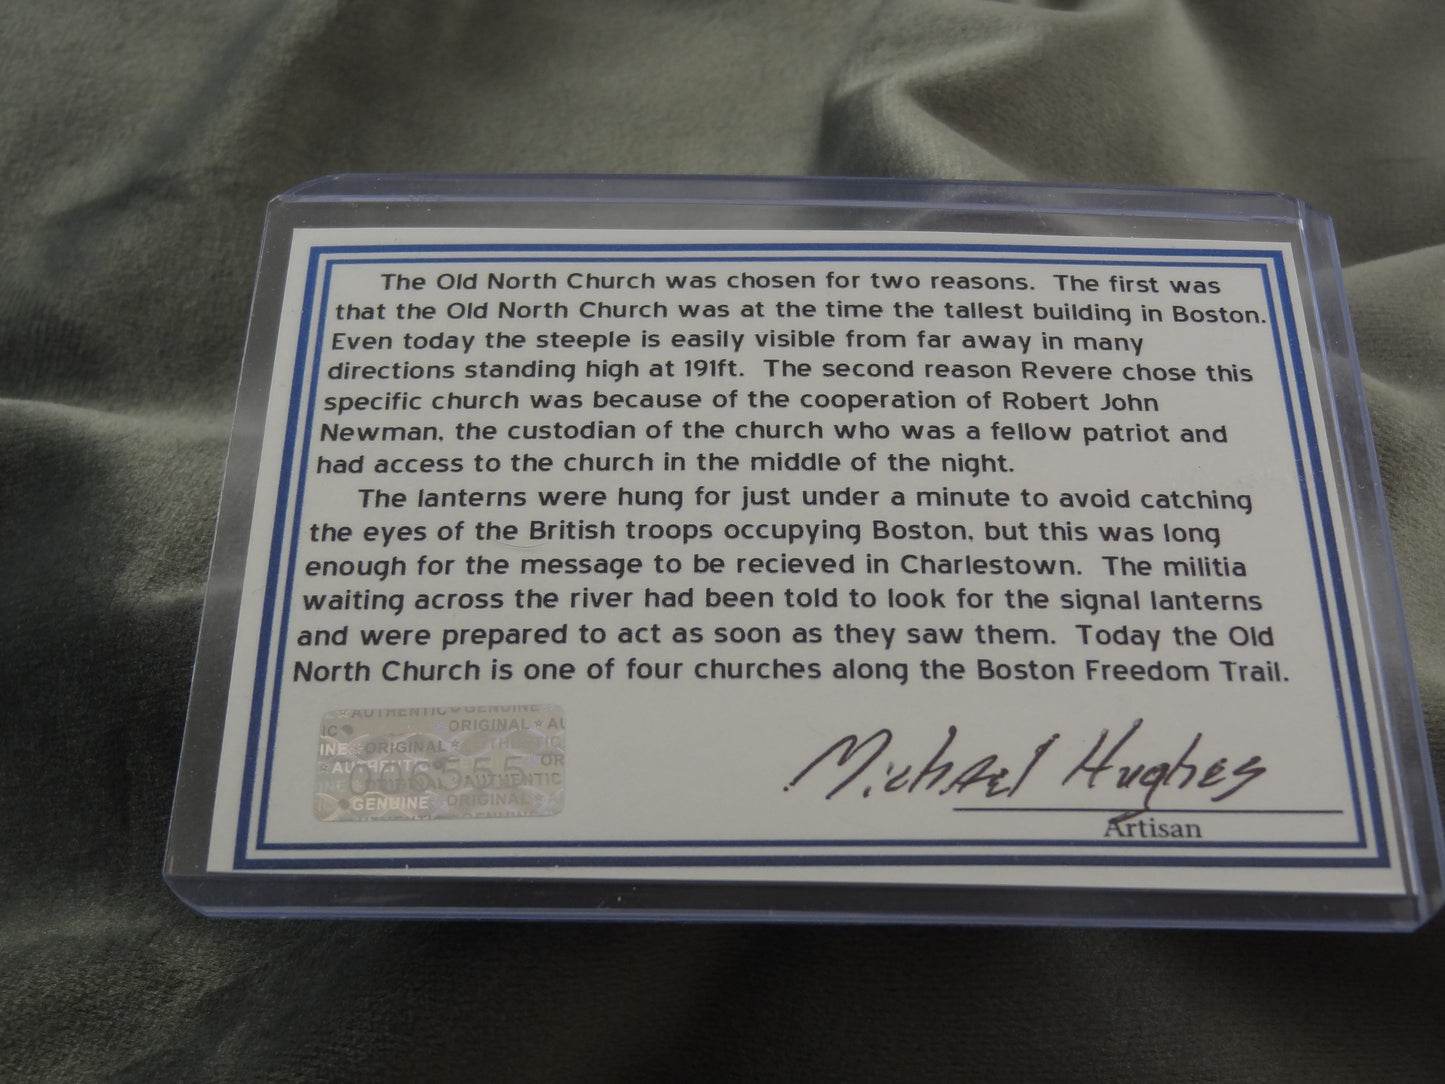 The Old North Church was chosen for two reasons. The first was
that the Old North Church was at the time the tallest building in Boston.
Even today the steeple is easily visible from far away in many
directions standing high at 191ft. The second reason Revere chose this
specific church was because of the cooperation of Robert John
Newman, the custodian of the church who was a fellow patriot and
had access to the church in the middle of the night.
The lanterns were hung for just under a minute to avoid catching
the eyes of the British troops occupying Boston, but this was long
enough for the message to be recieved in Charlestown. The militia
waiting across the river had been told to look for the signal lanterns
and were prepared to act as soon as they saw them. Today the Old
North Church is one of four churches along the Boston Freedom Trail.
AUTHENTIC GENUINE
ORIGINAL
ORIGINAL
AUTHENTIC
006555
AUTHENTIC
GENUINE ORIGINAL
Michael Hughes
Artisan